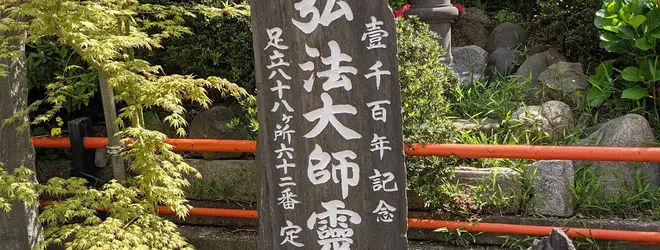 壹千百年記念
弘法大師靈
足立八十八ヶ所六十二番 定